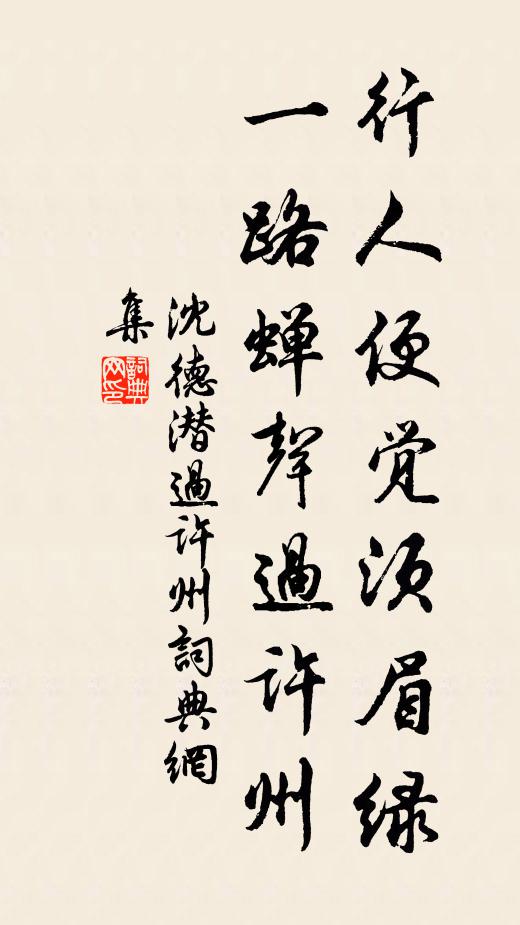 行人便觉须眉绿
一路蝉聲過许州
沈德潜過许州詞典網
集
詞典网印